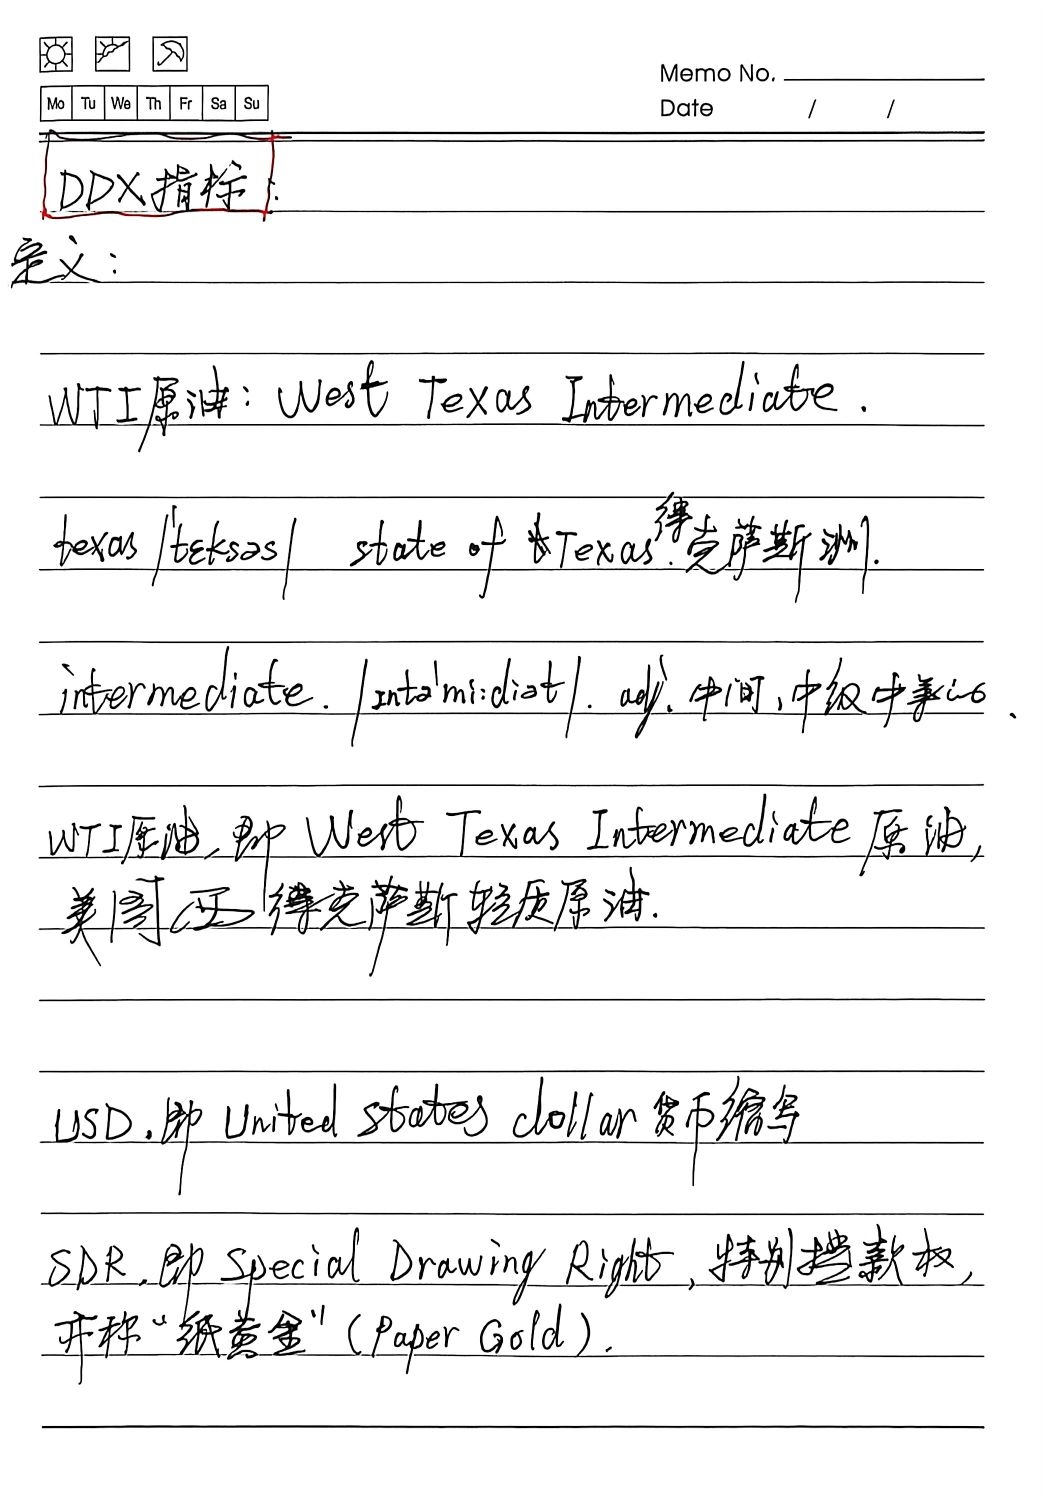 Memo No.
Mo Tu We Th Fr Sa Su
Date / /
DDX指标:
定义:
WTI原油: West Texas Intermediate.
texas /'tɛksəs/ state of Texas. 得克萨斯洲.
intermediate. /ɪntə'mi:diət/. adj. 中间, 中级
WTI原油, 即 West Texas Intermediate 原油,
美国西得克萨斯轻质原油.
USD. 即 United states dollar 货币缩写
SDR. 即 Special Drawing Right, 特别提款权,
亦称“纸黄金”(Paper Gold).